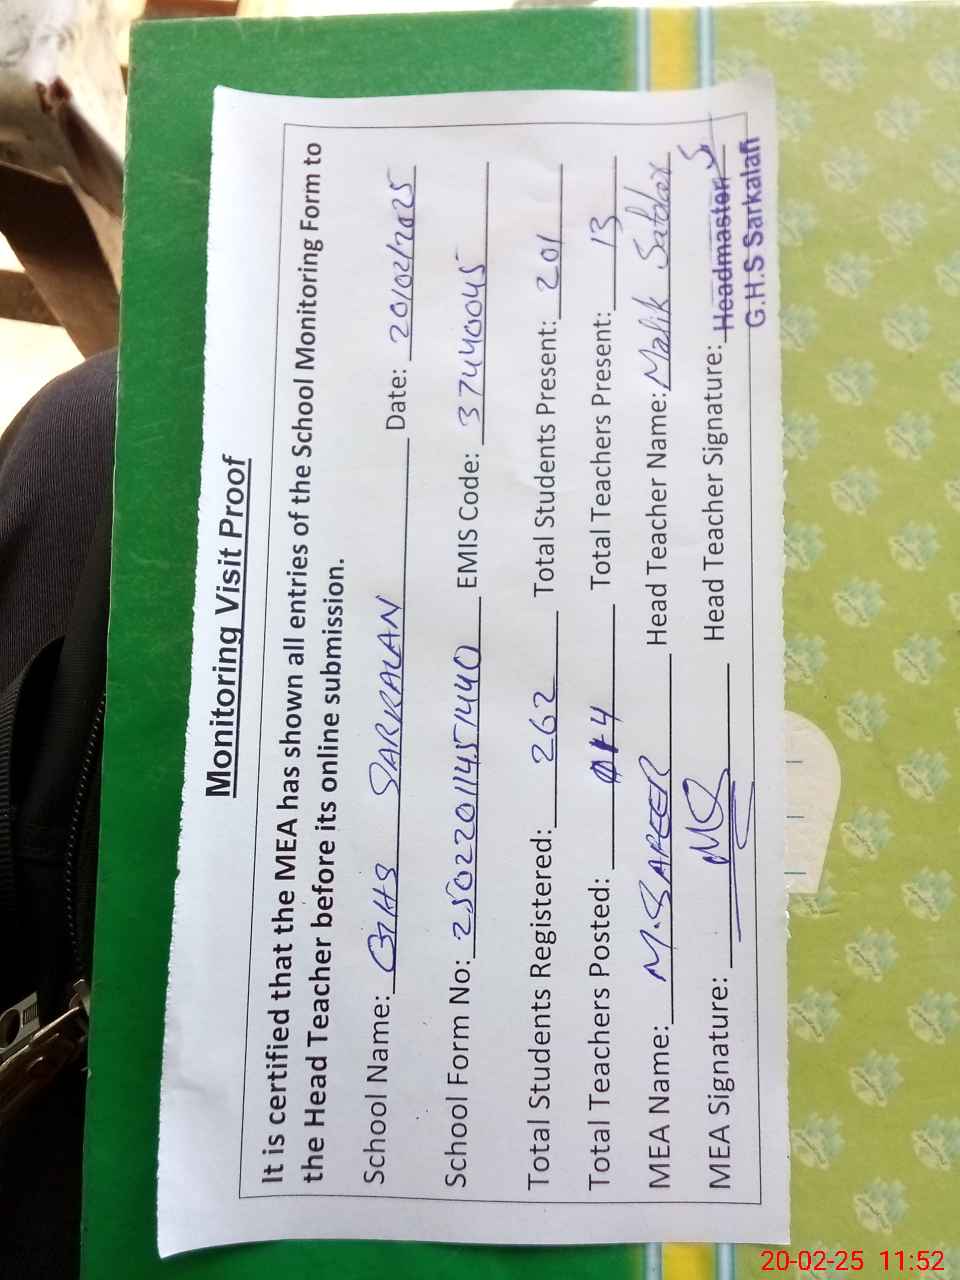 Monitoring Visit Proof
It is certified that the MEA has shown all entries of the School Monitoring Form to
the Head Teacher before its online submission.
School Name: GHS SARKALAN Date: 20/02/2025
School Form No: 25022011451440 EMIS Code: 37440045
Total Students Registered: 262 Total Students Present: 201
Total Teachers Posted: 14 Total Teachers Present: 13
MEA Name: M. SAFEER Head Teacher Name: Malik Safdar
MEA Signature: Head Teacher Signature: Headmaster
G.H.S Sarkalan
20-02-25 11:52